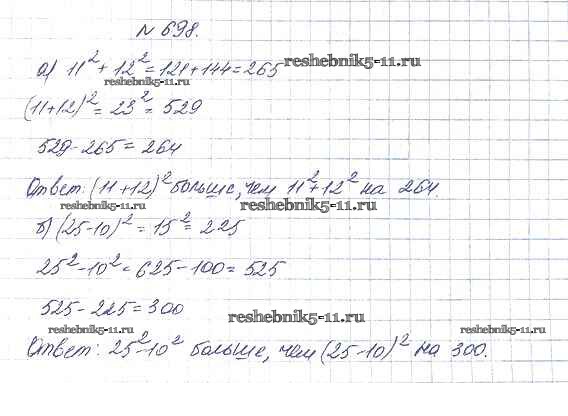 № 698.
а) 11² + 12² = 121 + 144 = 265 reshebnik5-11.ru
reshebnik5-11.ru
(11+12)² = 23² = 529
529 - 265 = 264
Ответ: (11+12)² больше, чем 11² + 12² на 264.
reshebnik5-11.ru reshebnik5-11.ru
б) (25-10)² = 15² = 225
25² - 10² = 625 - 100 = 525
525 - 225 = 300 reshebnik5-11.ru
reshebnik5-11.ru reshebnik5-11.ru
Ответ: 25² - 10² больше, чем (25-10)² на 300.